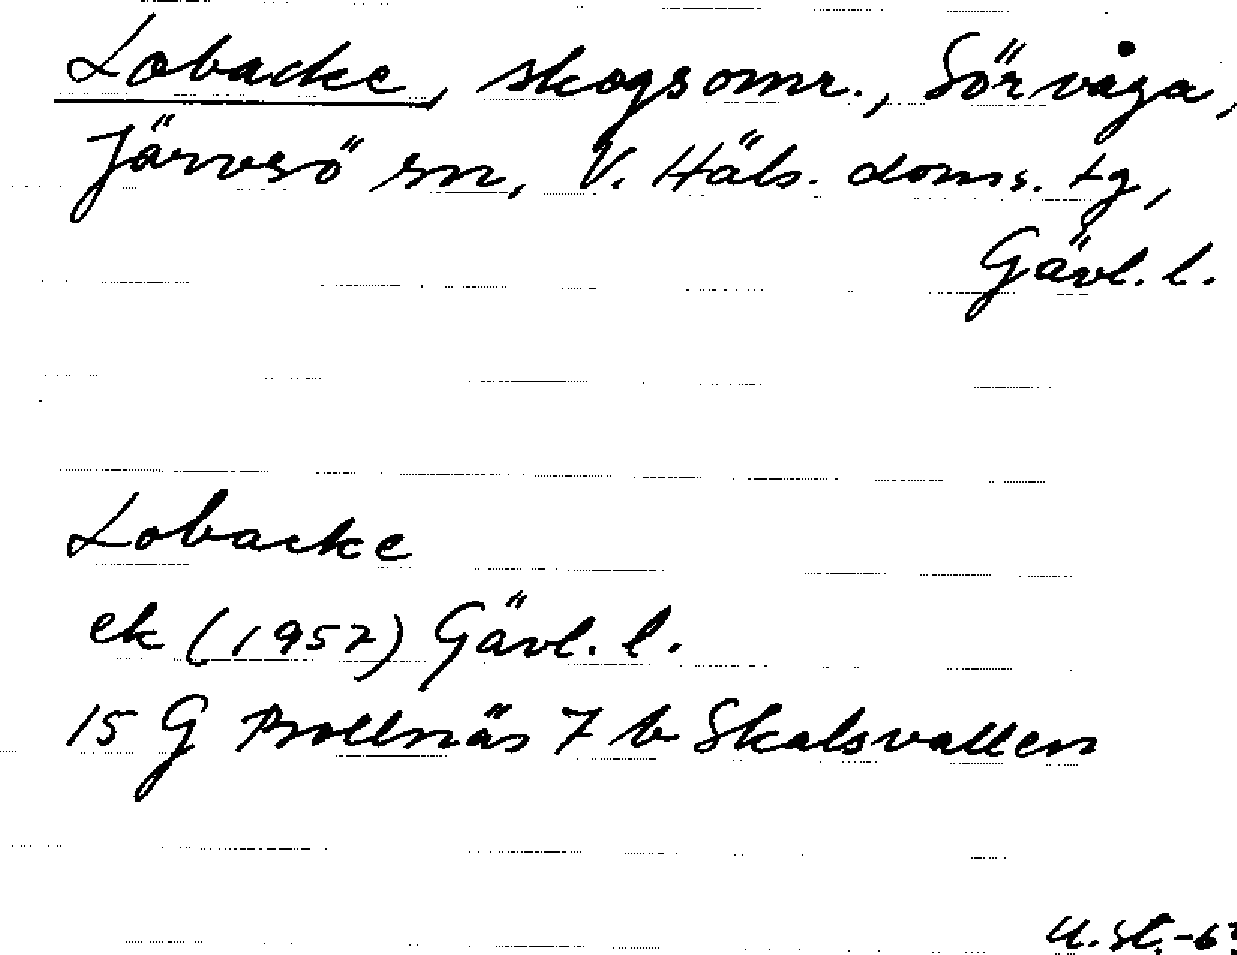 Lobacke, skogsomr., Sörvåga,
Järvsö sn, V. Häls. doms. tg,
Gävl. l.
Lobacke
ek (1957) Gävl. l.
15 G Bollnäs 7 b Skålsvallen
U. St.